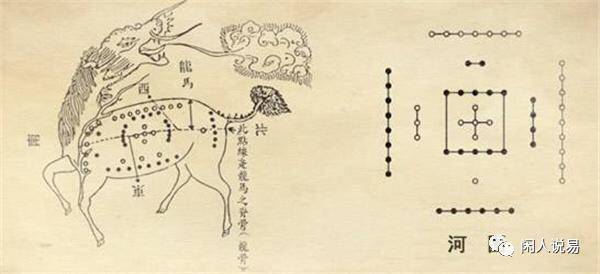 龍馬
西
南
北
東
此點線是龍馬之脊骨(龍骨)
河
闲人说易